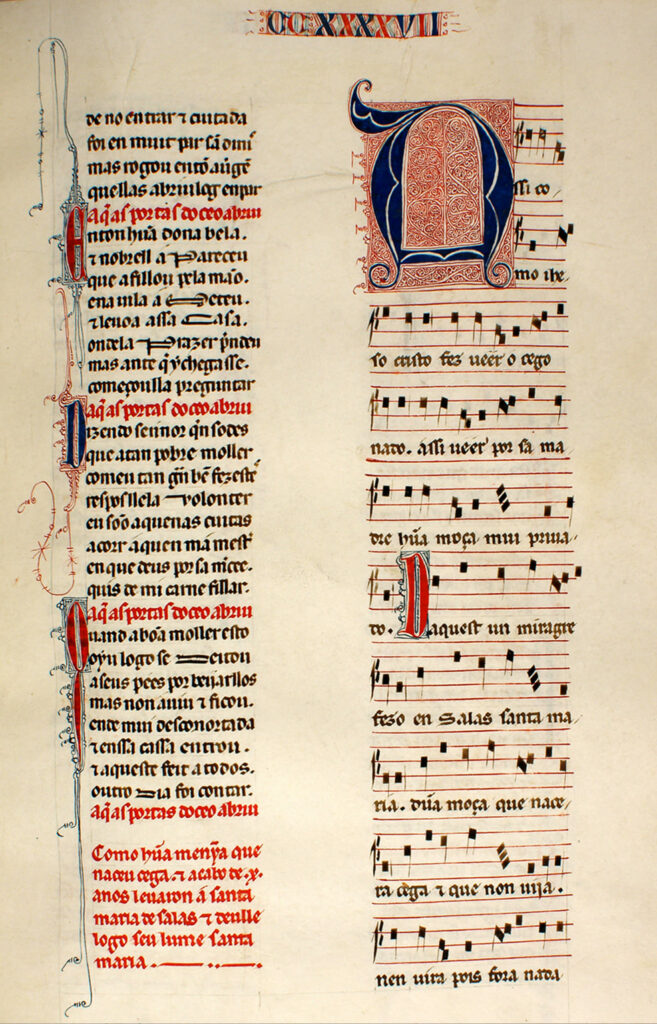 CCXXXXVII
de no entrar ⁊ cuitada
foi en muit pir sã dim̃
mas rogou entõ au gẽ
quellas abriu log en pir
Aq̃ as portas do ceo abriu
Enton hũa dona bela.
⁊ nobrell a Pareceu
que a fillou pela mão.
ena vila a Meteu.
⁊ levou a ssa Casa.
onde la Prazer p̃ndeu
mas ante q̃ y chegasse.
começoulla preguntar
Aq̃ as portas do ceo abriu
Dizendo sennor q̃n sodes
que a tan pobre moller
come tan gñ bẽ fezestẽ
respos llela volonter
eu sõo a que nas cuitas
acorr a quen m á mestẽ
en que deus por sa m̃cee.
quis de mi carne fillar.
Aq̃ as portas do ceo abriu
Quand a bõa moller esto
oyu logo se Deitou
a seus pees por beijarllos
mas non a viu ⁊ ficou.
ende mui desconortada
⁊ en ssa cassa entrou.
⁊ aqueste feit a todos.
outro Dia foi contar.
Aq̃ as portas do ceo abriu
Como hũa menỹa que
naceu cega. ⁊ acabo de .x.
anos levaron á santa
maria de salas ⁊ deulle
logo seu lume santa
maria.
Assi co
mo ihe
so cristo fez veer o cego
nado. assi veer por sa ma
dre hũa moça mui priva
do. Daquest un miragre
fezo en Salas santa ma
ria. dũa moça que nace
ra cega ⁊ que non vija.
nen vira pois fora nada